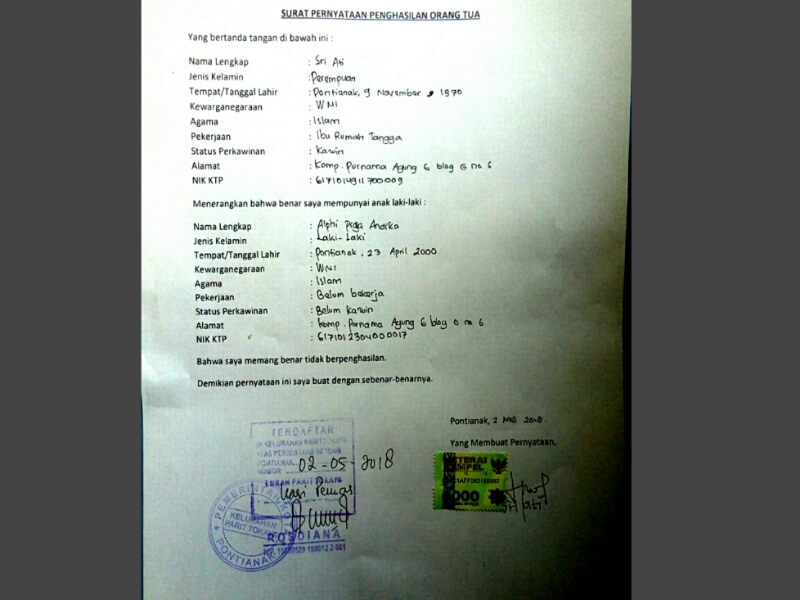 SURAT PERNYATAAN PENGHASILAN ORANG TUA
Yang bertanda tangan di bawah ini :
Nama Lengkap : Sri Ati
Jenis Kelamin : Perempuan
Tempat/Tanggal Lahir : Pontianak, 9 November 1970
Kewarganegaraan : WNI
Agama : Islam
Pekerjaan : Ibu Rumah Tangga
Status Perkawinan : Kawin
Alamat : Komp. Purnama Agung 6 blog G no 6
NIK KTP : 6171014911700009
Menerangkan bahwa benar saya mempunyai anak laki-laki :
Nama Lengkap : Alphi
Jenis Kelamin : Laki-Laki
Tempat/Tanggal Lahir : Pontianak, 23 April 2000
Kewarganegaraan : WNI
Agama : Islam
Pekerjaan : Belum bekerja
Status Perkawinan : Belum Kawin
Alamat : Komp. Purnama Agung 6 blog G no 6
NIK KTP : 6171012304000017
Bahwa saya memang benar tidak berpenghasilan.
Demikian pernyataan ini saya buat dengan sebenar-benarnya.
Pontianak, 2 Mei 2018.
Yang Membuat Pernyataan,
TERDAFTAR
DI KELURAHAN PARIT TOKAYA
NOMOR: 02-05-2018
LURAH PARIT TOKAYA
Kasi Pemas
ROSDIANA
PEMERINTAH KOTA
KELURAHAN
PARIT TOKAYA
PONTIANAK
METERAI
TEMPEL
6000
Sri Ati